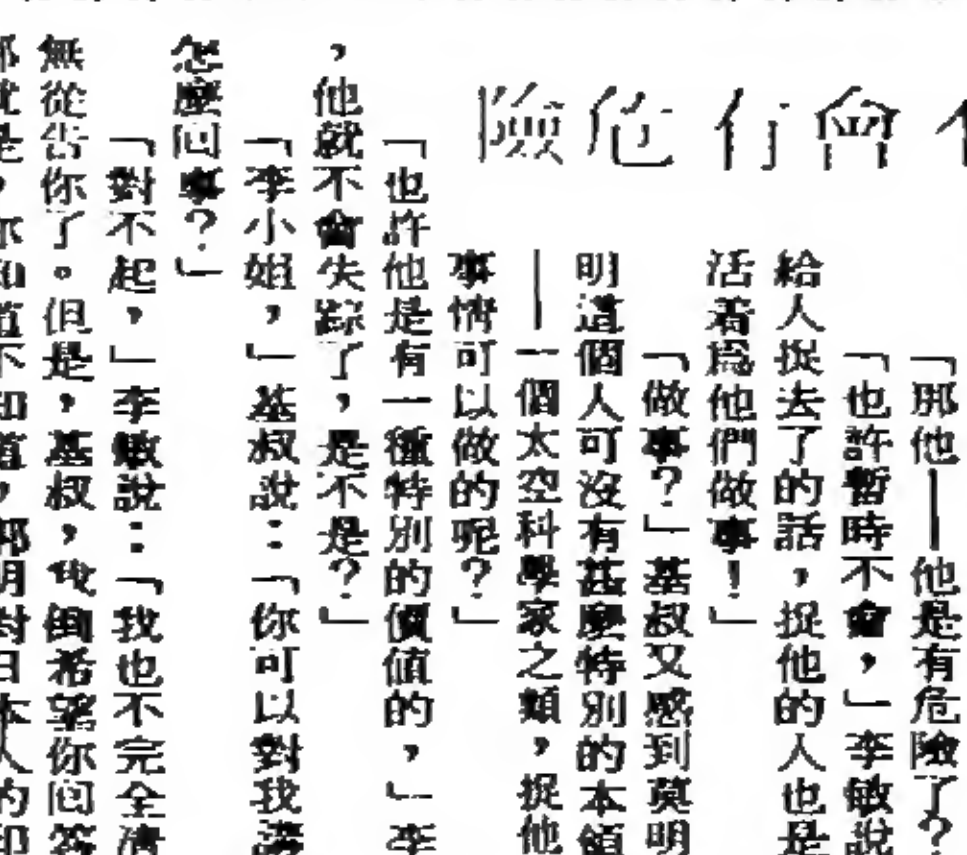 會有危險
「那他——他是有危險了?
「也許暫時不會,」李敏說
給人捉去了的話,捉他的人也是
活着爲他們做事!」
「做事?」基叔又感到莫明
明道個人可沒有甚麼特別的本領
——一個太空科學家之類,捉他
事情可以做的呢?」
「也許他是有一種特別的價值的,」李
,他就不會失踪了,是不是?」
「李小姐,」基叔說:「你可以對我講
怎麼回事?」
「對不起,」李敏說:「我也不完全清
無從告你了。但是,基叔,我倒希望你回答
那就是,你知道不知道,鄭明對日本人的印